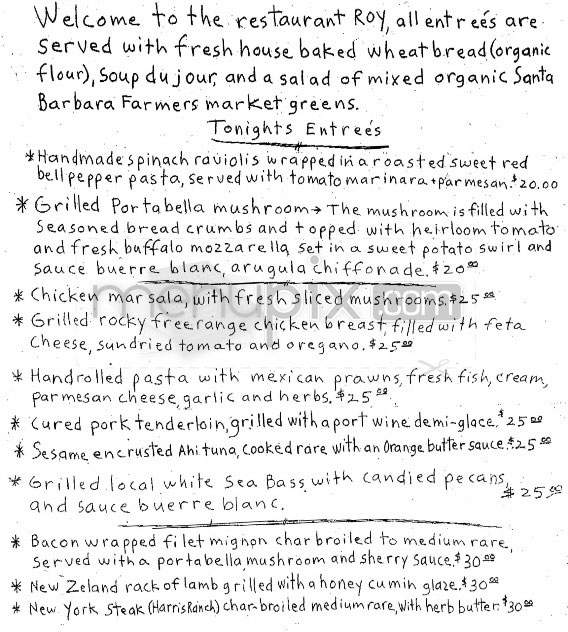 Welcome to the restaurant ROY, all entreés are
served with fresh house baked wheat bread (organic
flour), soup du jour, and a salad of mixed organic Santa
Barbara Farmers market greens.
Tonights Entreés
*Handmade spinach raviolis wrapped in a roasted sweet red
bell pepper pasta, served with tomato marinara + parmesan. $20.00
* Grilled Portabella mushroom → The mushroom is filled with
seasoned bread crumbs and topped with heirloom tomato
and fresh buffalo mozzarella, set in a sweet potato swirl and
sauce buerre blanc, arugula chiffonade. $20.00
* Chicken marsala, with fresh sliced mushrooms. $25.00
* Grilled rocky free range chicken breast, filled with feta
cheese, sundried tomato and oregano. $25.00
menupix.com
* Handrolled pasta with mexican prawns, fresh fish, cream,
parmesan cheese, garlic and herbs. $25.00
* Cured pork tenderloin, grilled with a port wine demi-glace. $25.00
* Sesame encrusted Ahi tuna, cooked rare with an Orange butter sauce. $25.00
* Grilled local white Sea Bass with candied pecans,
and sauce buerre blanc. $25.00
* Bacon wrapped filet mignon char broiled to medium rare,
served with a portabella mushroom and sherry sauce. $30.00
* New Zeland rack of lamb grilled with a honey cumin glaze. $30.00
* New York Steak (Harris Ranch) char-broiled medium rare, with herb butter. $30.00